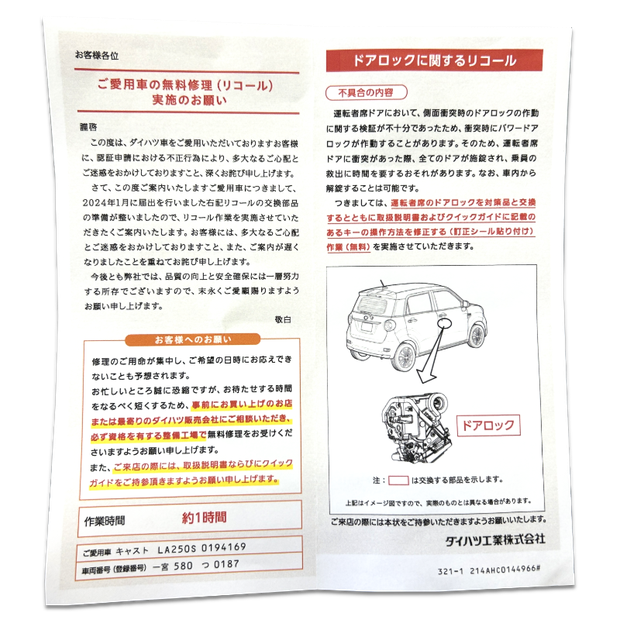 お客様各位
ご愛用車の無料修理（リコール）
実施のお願い
謹啓
この度は、ダイハツ車をご愛用いただいておりますお客様
に、認証申請における不正行為により、多大なるご心配と
ご迷惑をおかけしておりますこと、深くお詫び申し上げます。
さて、この度ご案内いたしますご愛用車につきまして、
2024年1月に届出を行いました右記リコールの交換部品
の準備が整いましたので、リコール作業を実施させていた
だきたくご案内いたします。お客様には、多大なるご心配
とご迷惑をおかけしておりますこと、また、ご案内が遅く
なりましたことを重ねてお詫び申し上げます。
今後とも弊社では、品質の向上と安全確保には一層努力
する所存でございますので、末永くご愛顧賜りますよう
お願い申し上げます。
敬白
お客様へのお願い
修理のご用命が集中し、ご希望の日時にお応えでき
ないことも予想されます。
お忙しいところ誠に恐縮ですが、お待たせする時間
をなるべく短くするため、事前にお買い上げのお店
または最寄りのダイハツ販売会社にご相談いただき、
必ず資格を有する整備工場で無料修理をお受けくだ
さいますようお願い申し上げます。
また、ご来店の際には、取扱説明書ならびにクイック
ガイドをご持参頂きますようお願い申し上げます。
作業時間 約1時間
ご愛用車 キャスト LA250S 0194169
車両番号（登録番号） 一宮 580 つ 0187
ドアロックに関するリコール
不具合の内容
運転者席ドアにおいて、側面衝突時のドアロックの作動
に関する検証が不十分であったため、衝突時にパワードア
ロックが作動することがあります。そのため、運転者席
ドアに衝突があった際、全てのドアが施錠され、乗員の
救出に時間を要するおそれがあります。なお、車内から
解錠することは可能です。
つきましては、運転者席のドアロックを対策品と交換
するとともに取扱説明書およびクイックガイドに記載の
あるキーの操作方法を修正する（訂正シール貼り付け）
作業（無料）を実施させていただきます。
ドアロック
注：　　は交換する部品を示します。
上記はイメージ図ですので、実際のものとは異なる場合があります。
ご来店の際には本状をご持参いただきますようお願いいたします。
ダイハツ工業株式会社
321-1 214AHC0144966#